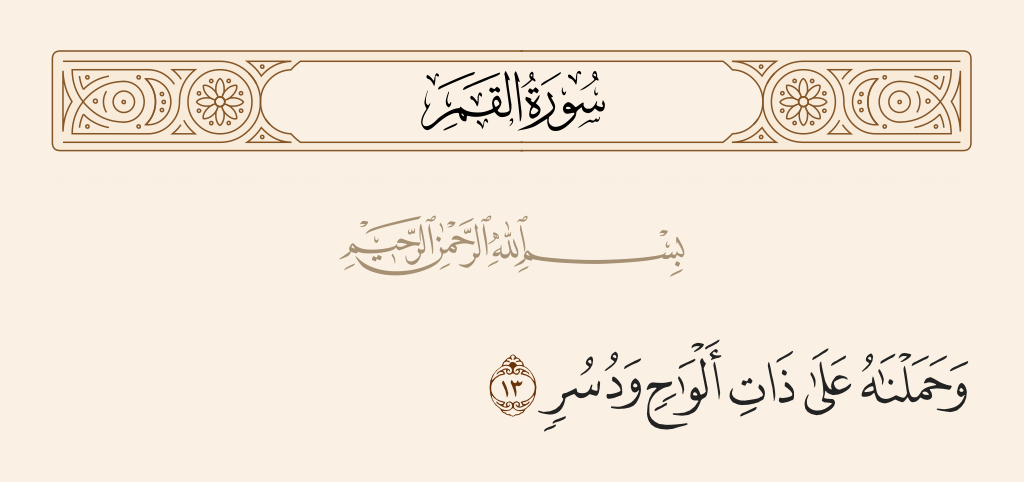 سُورَةُ القَمَرِ
بِسْمِ ٱللَّهِ ٱلرَّحْمَٰنِ ٱلرَّحِيمِ
وَحَمَلْنَٰهُ عَلَىٰ ذَاتِ أَلْوَٰحٍ وَدُسُرٍ ١٣